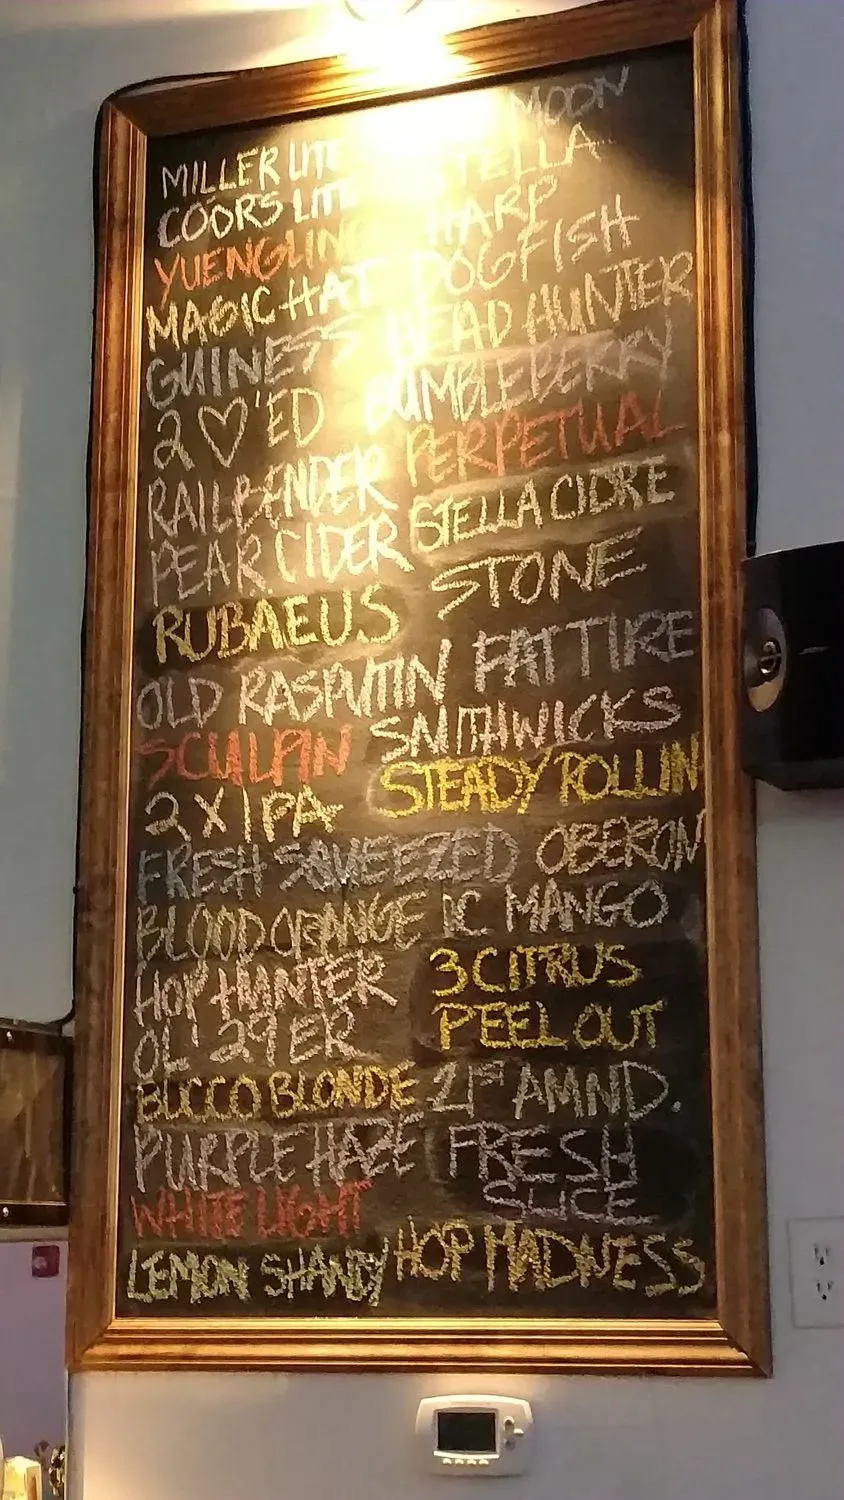 MILLER LITE MOON
COORS LITE STELLA
YUENGLING HARP
MAGIC HAT DOGFISH
GUINESS HEAD HUNTER
2 ♡'ED BUMBLEBERRY
RAILBENDER PERPETUAL
PEAR CIDER STELLA CIDRE
RUBAEUS STONE
OLD RASPUTIN FAT TIRE
SCULPIN SMITHWICKS
2 X IPA STEADY ROLLIN
FRESH SQUEEZED OBERON
BLOOD ORANGE IC MANGO
HOP HUNTER 3 CITRUS
OL' 29ER PEEL OUT
BUCCO BLONDE 21ST AMND.
PURPLE HAZE FRESH
WHITE LIGHT SLICE
LEMON SHANDY HOP MADNESS